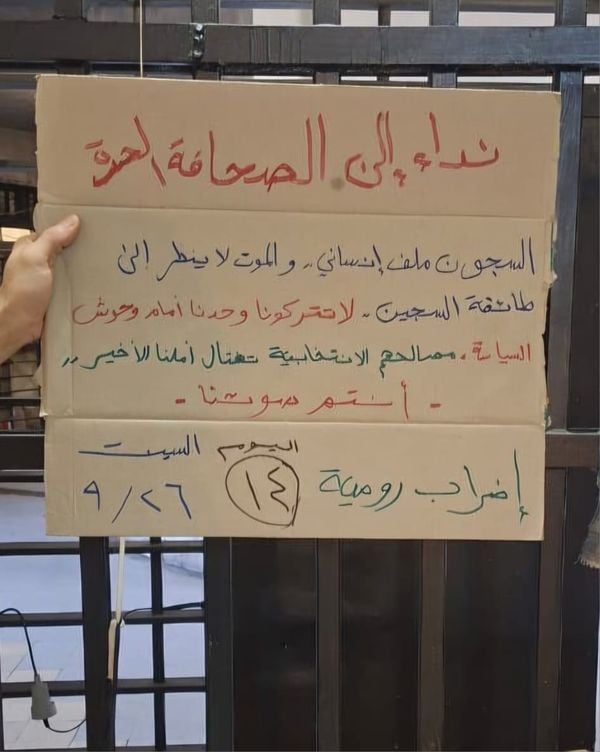 نداء إلى الصحافة الحرة
السجون ملف إنساني,, والموت لا ينظر إلى
طائفة السجين,, لا تتركونا وحدنا أمام وحوش
السياسة، مصالحهم الانتخابية تغتال أملنا الأخير,,
- أنتم صوتنا -
إضراب رومية اليوم ١٤ السبت
٩/٢٦